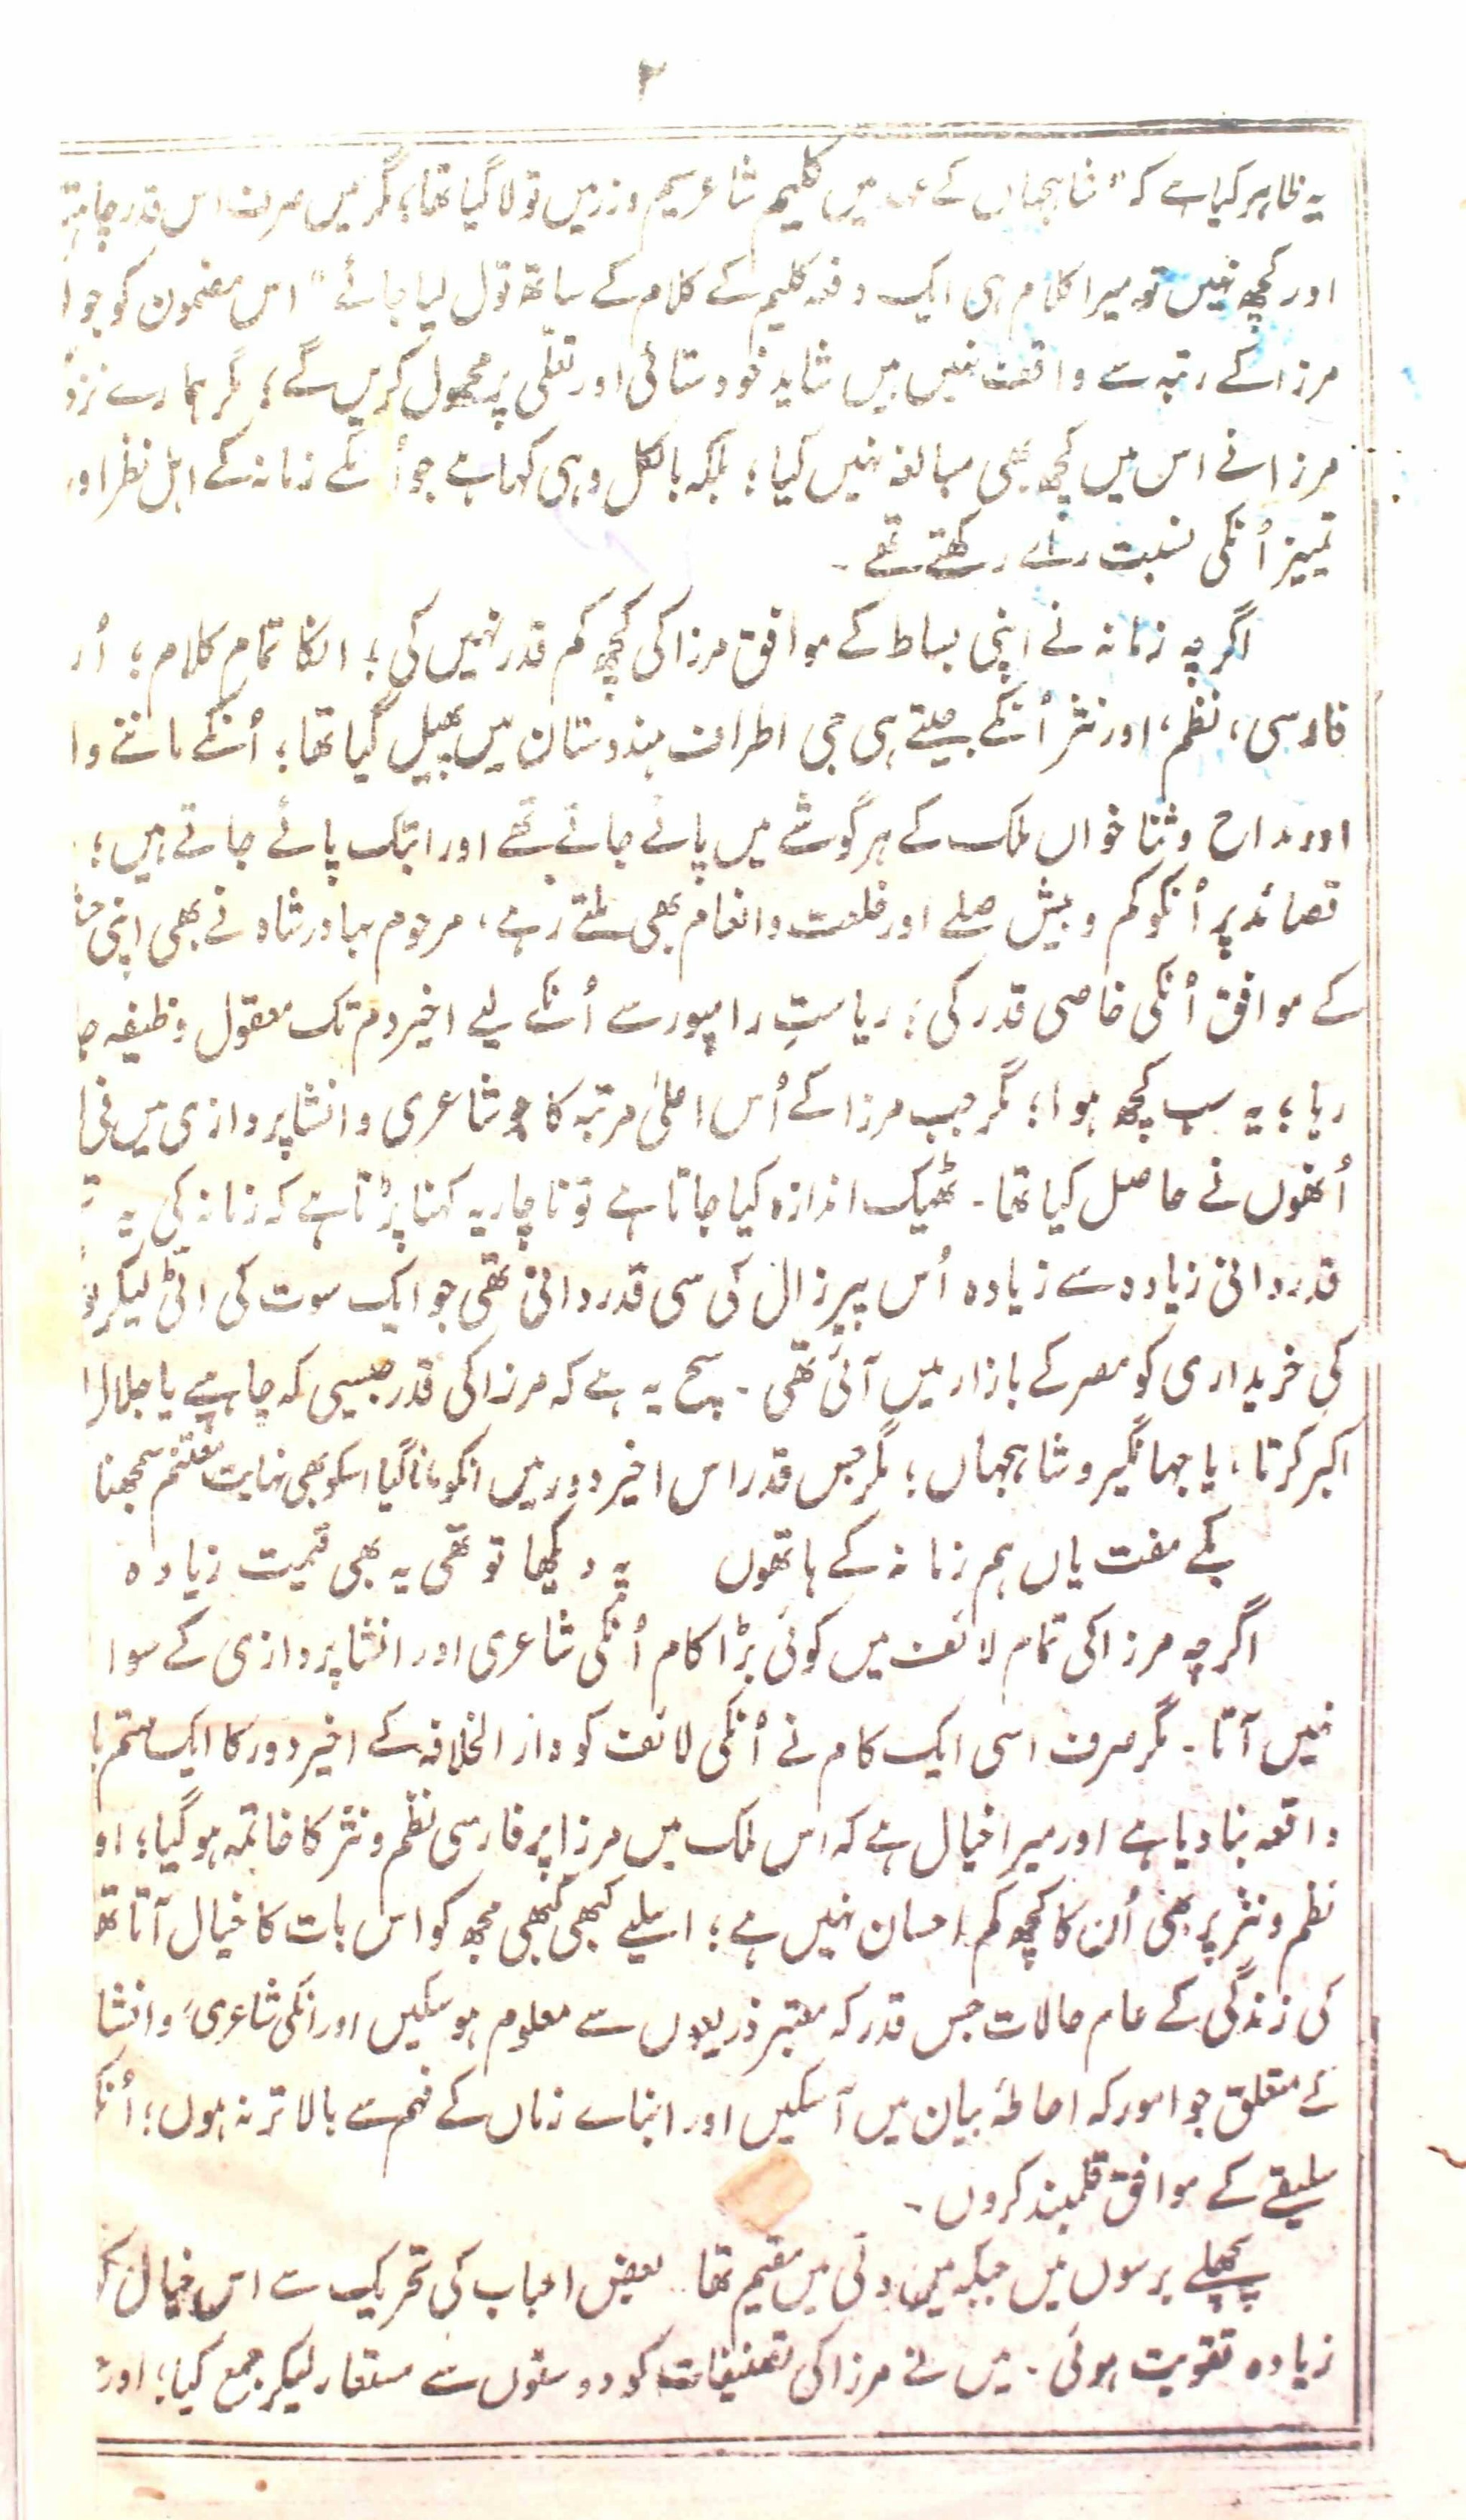 ۳
یہ ظاہر کیا ہے کہ "شاہجہاں کے عہد میں کلیم شاعر سیم و زر میں تولا گیا تھا؛ مگر میں صرف اس قدر چاہتا
اور کچھ نہیں تو میرا کلام ہی ایک دفعہ کلیم کے کلام کے ساتھ تول لیا جائے" اس مضمون کو جو
مرزا کے رتبہ سے واقف نہیں ہیں شاید خودستائی اور تعلّی پر محمول کریں گے؛ مگر ہمارے
مرزا نے اس میں کچھ بھی مبالغہ نہیں کیا؛ بلکہ بالکل وہی کہا ہے جو اُنکے زمانہ کے اہل نظر اور
تمییز اُنکی نسبت راے رکھتے تھے۔
اگرچہ زمانہ نے اپنی بساط کے موافق مرزا کی کچھ کم قدر نہیں کی؛ انکا تمام کلام؛
فارسی، نظم، اور نثر اُنکے جیتے ہی جی اطراف ہندوستان میں پھیل گیا تھا؛ اُنکے ماننے
اور مداح و ثناخواں ملک کے ہر گوشے میں پائے جاتے تھے اور ابتک پائے جاتے ہیں؛
قصائد پر اُنکو کم و بیش صلے اور خلعت و انعام بھی ملتے رہے، مرحوم بہادر شاہ نے بھی اپنی
کے موافق اُنکی خاصی قدر کی؛ ریاستِ رامپور سے اُنکے لیے اخیر دم تک معقول وظیفہ
رہا؛ یہ سب کچھ ہوا؛ مگر جب مرزا کے اُس اعلیٰ مرتبہ کا جو شاعری و انشاپردازی میں
اُنھوں نے حاصل کیا تھا۔ ٹھیک اندازہ کیا جاتا ہے تو ناچار یہ کہنا پڑتا ہے کہ زمانہ کی یہ
قدردانی زیادہ سے زیادہ اُس پیرزال کی سی قدردانی تھی جو ایک سوت کی انٹی لیکر
کی خریداری کو مصر کے بازار میں آئی تھی۔ سچ یہ ہے کہ مرزا کی قدر جیسی کہ چاہیے یا
اکبر کرتا، یا جہانگیر و شاہجہاں؛ مگر جس قدر اس اخیر دور میں انکو مانا گیا اسکو بھی نہایت مغتنم سمجھنا
بکے مفت یاں ہم زمانہ کے ہاتھوں پہ دیکھا تو تھی یہ بھی قیمت زیادہ
اگرچہ مرزا کی تمام لائف میں کوئی بڑا کام اُنکی شاعری اور انشاپردازی کے سوا
نہیں آتا۔ مگر صرف اسی ایک کام نے اُنکی لائف کو دار الخلافہ کے اخیر دور کا ایک
واقعہ بنا دیا ہے اور میرا خیال ہے کہ اس ملک میں مرزا پر فارسی نظم و نثر کا خاتمہ ہو گیا؛
نظم و نثر پر بھی اُن کا کچھ کم احسان نہیں ہے؛ اسلیے کبھی کبھی مجھ کو اس بات کا خیال آتا
کی زندگی کے عام حالات جس قدر کہ معتبر ذریعوں سے معلوم ہو سکیں اور انکی شاعری و انشا
کے متعلق جو امور کہ احاطۂ بیان میں آسکیں اور ابناے زماں کے فہم سے بالاتر نہ ہوں؛
سلیقے کے موافق قلمبند کروں۔
پچھلے برسوں میں جبکہ میں دلّی میں مقیم تھا بعض احباب کی تحریک سے اس خیال
زیادہ تقویت ہوئی۔ میں نے مرزا کی تصنیفات کو دوستوں سے مستعار لیکر جمع کیا؛ اور